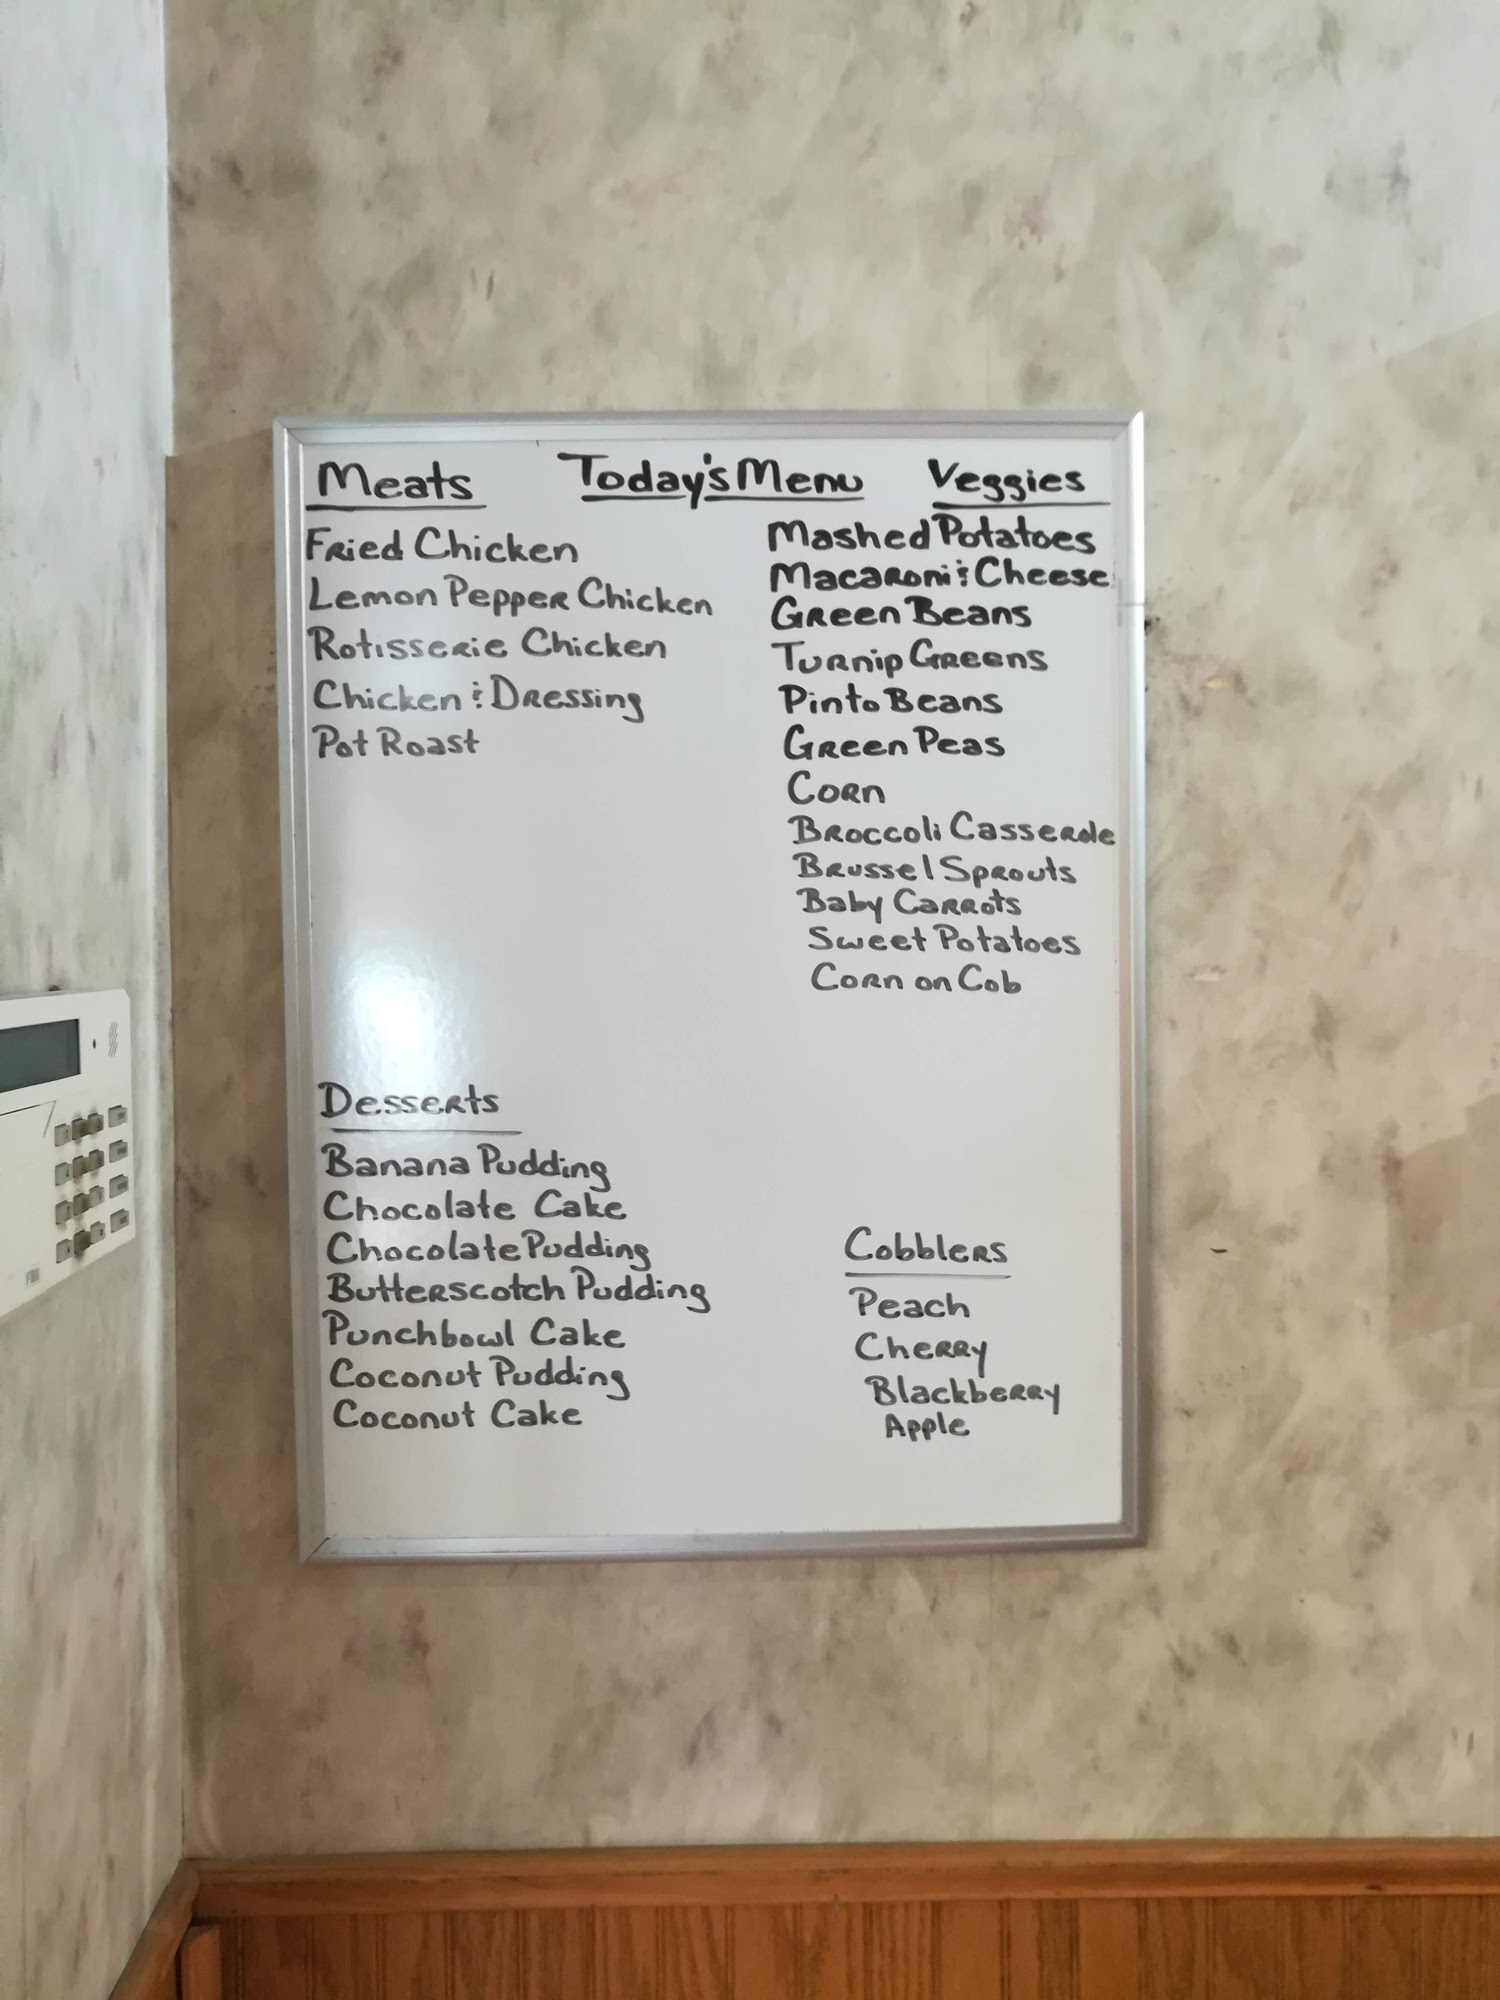 Today's Menu
Meats
Fried Chicken
Lemon Pepper Chicken
Rotisserie Chicken
Chicken & Dressing
Pot Roast
Veggies
Mashed Potatoes
Macaroni & Cheese
Green Beans
Turnip Greens
Pinto Beans
Green Peas
Corn
Broccoli Casserole
Brussel Sprouts
Baby Carrots
Sweet Potatoes
Corn on Cob
Desserts
Banana Pudding
Chocolate Cake
Chocolate Pudding
Butterscotch Pudding
Punchbowl Cake
Coconut Pudding
Coconut Cake
Cobblers
Peach
Cherry
Blackberry
Apple